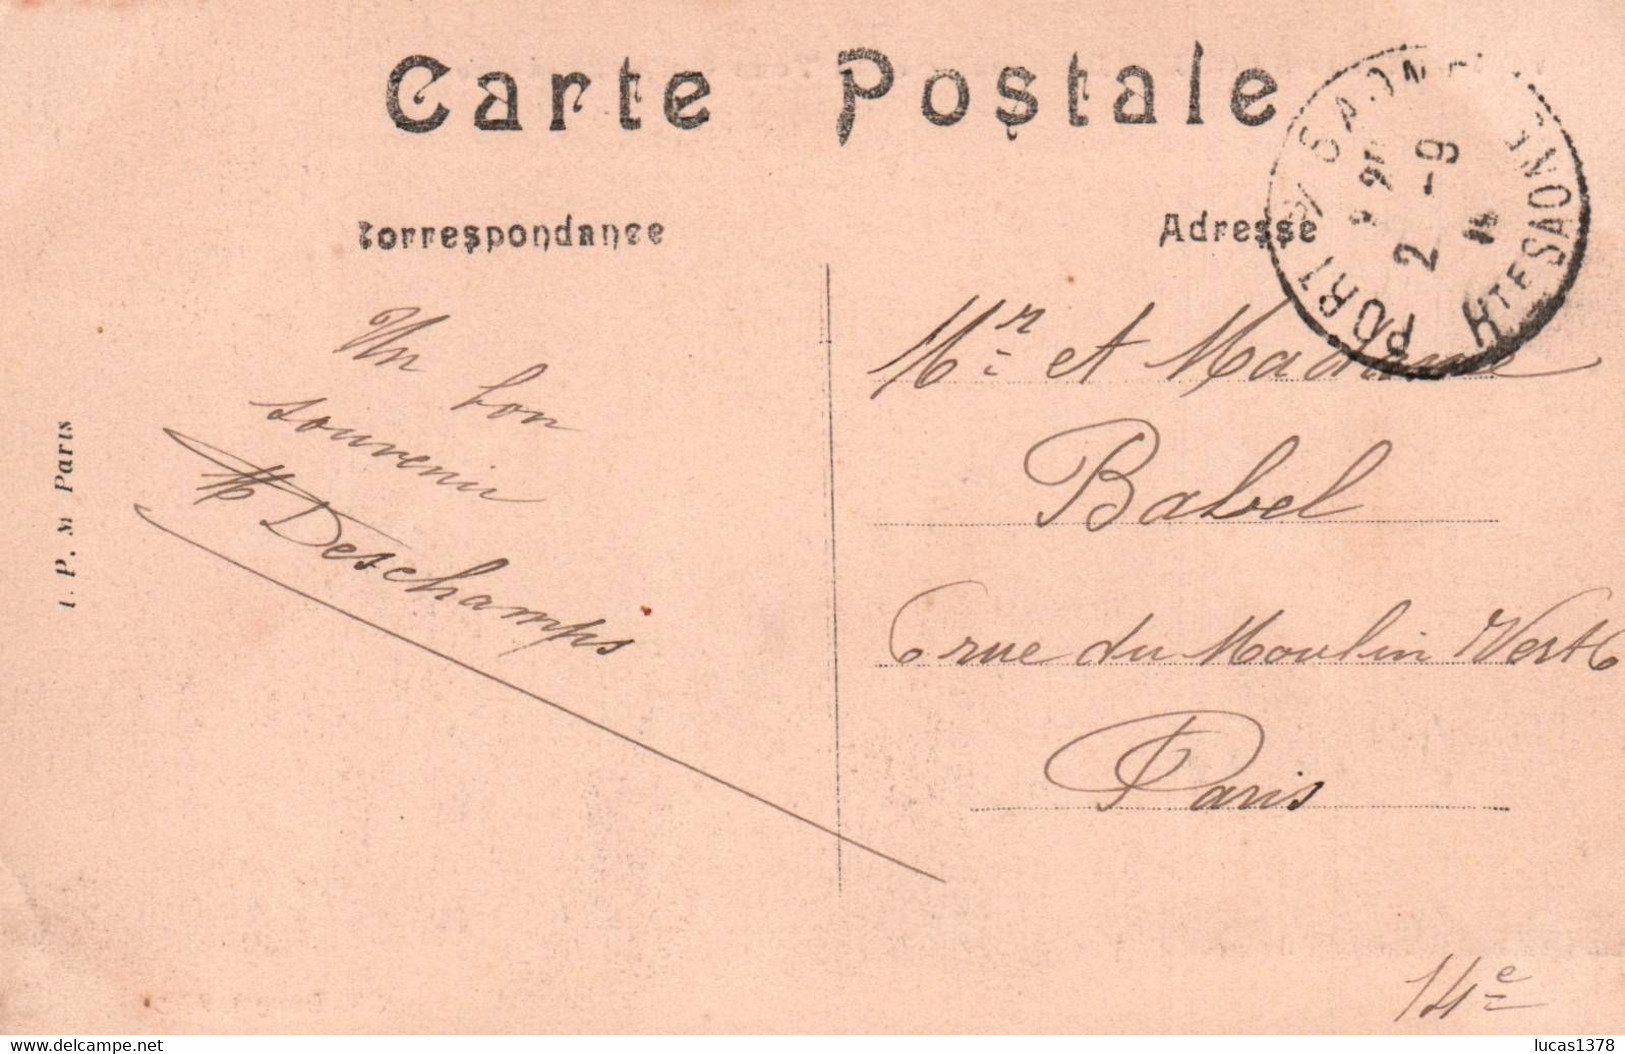 Carte Postale
Correspondance
Adresse
PORT S/ SAONE
HTE SAONE
2 -9
Un bon
souvenir
Deschamps
Mr et Madame
Babel
6 rue du Moulin Vert 6
Paris
14e
I. P. M Paris
www.delcampe.net
lucas1378